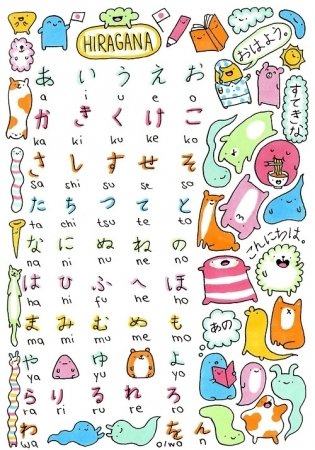 HIRAGANA
おはよう。
あ い う え お
a i u e o
すてきな
か き く け こ
ka ki ku ke ko
さ し す せ そ
sa shi su se so
た ち つ て と
ta chi tsu te to
な に ぬ ね の
na ni nu ne no
こんにちは。
は ひ ふ へ ほ
ha hi fu he ho
ま み む め も
ma mi mu me mo
あの
や ゆ よ
ya yu yo
ら り る れ ろ
ra ri ru re ro
わ を ん
wa o/wo n